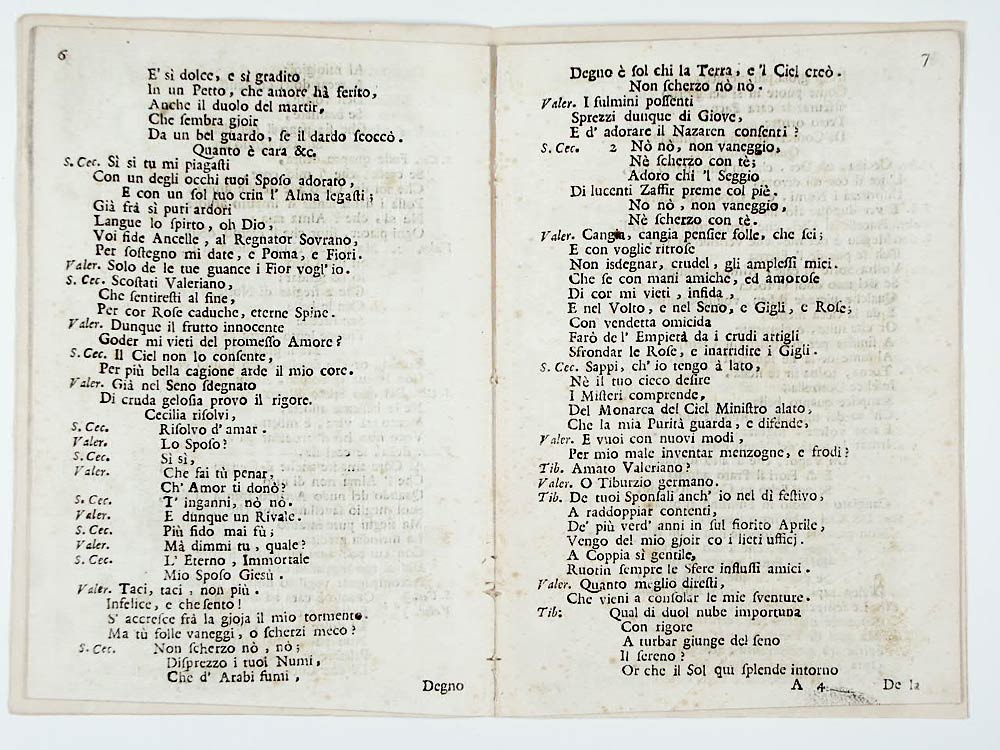 6
E' sì dolce, e sì gradito
In un Petto, che amore hà ferito,
Anche il duolo del martir,
Che sembra gioir
Da un bel guardo, se il dardo scoccò.
Quanto è cara &c.
S. Cec. Sì si tu mi piagasti
Con un degli occhi tuoi Sposo adorato,
E con un sol tuo crin l' Alma legasti;
Già frà sì puri ardori
Langue lo spirto, oh Dio,
Voi fide Ancelle, al Regnator Sovrano,
Per sostegno mi date, e Poma, e Fiori.
Valer. Solo de le tue guance i Fior vogl' io.
S. Cec. Scostati Valeriano,
Che sentiresti al fine,
Per cor Rose caduche, eterne Spine.
Valer. Dunque il frutto innocente
Goder mi vieti del promesso Amore?
S. Cec. Il Ciel non lo consente,
Per più bella cagione arde il mio core.
Valer. Già nel Seno sdegnato
Di cruda gelosia provo il rigore.
Cecilia risolvi,
S. Cec. Risolvo d' amar.
Valer. Lo Sposo?
S. Cec. Sì sì,
Valer. Che fai tù penar,
Ch' Amor ti donò?
S. Cec. T' inganni, nò nò.
Valer. E dunque un Rivale.
S. Cec. Più fido mai fù;
Valer. Mà dimmi tu, quale?
S. Cec. L' Eterno, Immortale
Mio Sposo Giesù.
Valer. Taci, taci, non più.
Infelice, e che sento!
S' accresce frà la gioja il mio tormento.
Ma tù folle vaneggi, o scherzi meco?
S. Cec. Non scherzo nò, nò;
Disprezzo i tuoi Numi,
Che d' Arabi fumi,
Degno
7
Degno è sol chi la Terra, e 'l Ciel creò.
Non scherzo nò nò.
Valer. I fulmini possenti
Sprezzi dunque di Giove,
E d' adorare il Nazaren consenti?
S. Cec. 2 Nò nò, non vaneggio,
Nè scherzo con tè;
Adoro chi 'l Seggio
Di lucenti Zaffir preme col piè.
No nò, non vaneggio,
Nè scherzo con tè.
Valer. Cangia, cangia pensier folle, che sei;
E con voglie ritrose
Non isdegnar, crudel, gli amplessi miei.
Che se con mani amiche, ed amorose
Di cor mi vieti, infida,
E nel Volto, e nel Seno, e Gigli, e Rose;
Con vendetta omicida
Farò de l' Empietà da i crudi artigli
Sfrondar le Rose, e inarridire i Gigli.
S. Cec. Sappi, ch' io tengo à lato,
Nè il tuo cieco desire
I Misteri comprende,
Del Monarca del Ciel Ministro alato,
Che la mia Purità guarda, e difende,
Valer. E vuoi con nuovi modi,
Per mio male inventar menzogne, e frodi?
Tib. Amato Valeriano?
Valer. O Tiburzio germano.
Tib. De tuoi Sponsali anch' io nel dì festivo,
A raddoppiar contenti,
De' più verd' anni in sul fiorito Aprile,
Vengo del mio gjoir co i lieti ufficj.
A Coppia sì gentile,
Ruotin sempre le Sfere influssi amici.
Valer. Quanto meglio diresti,
Che vieni a consolar le mie sventure.
Tib: Qual di duol nube importuna
Con rigore
A turbar giunge del seno
Il sereno?
Or che il Sol qui splende intorno
A 4
De la